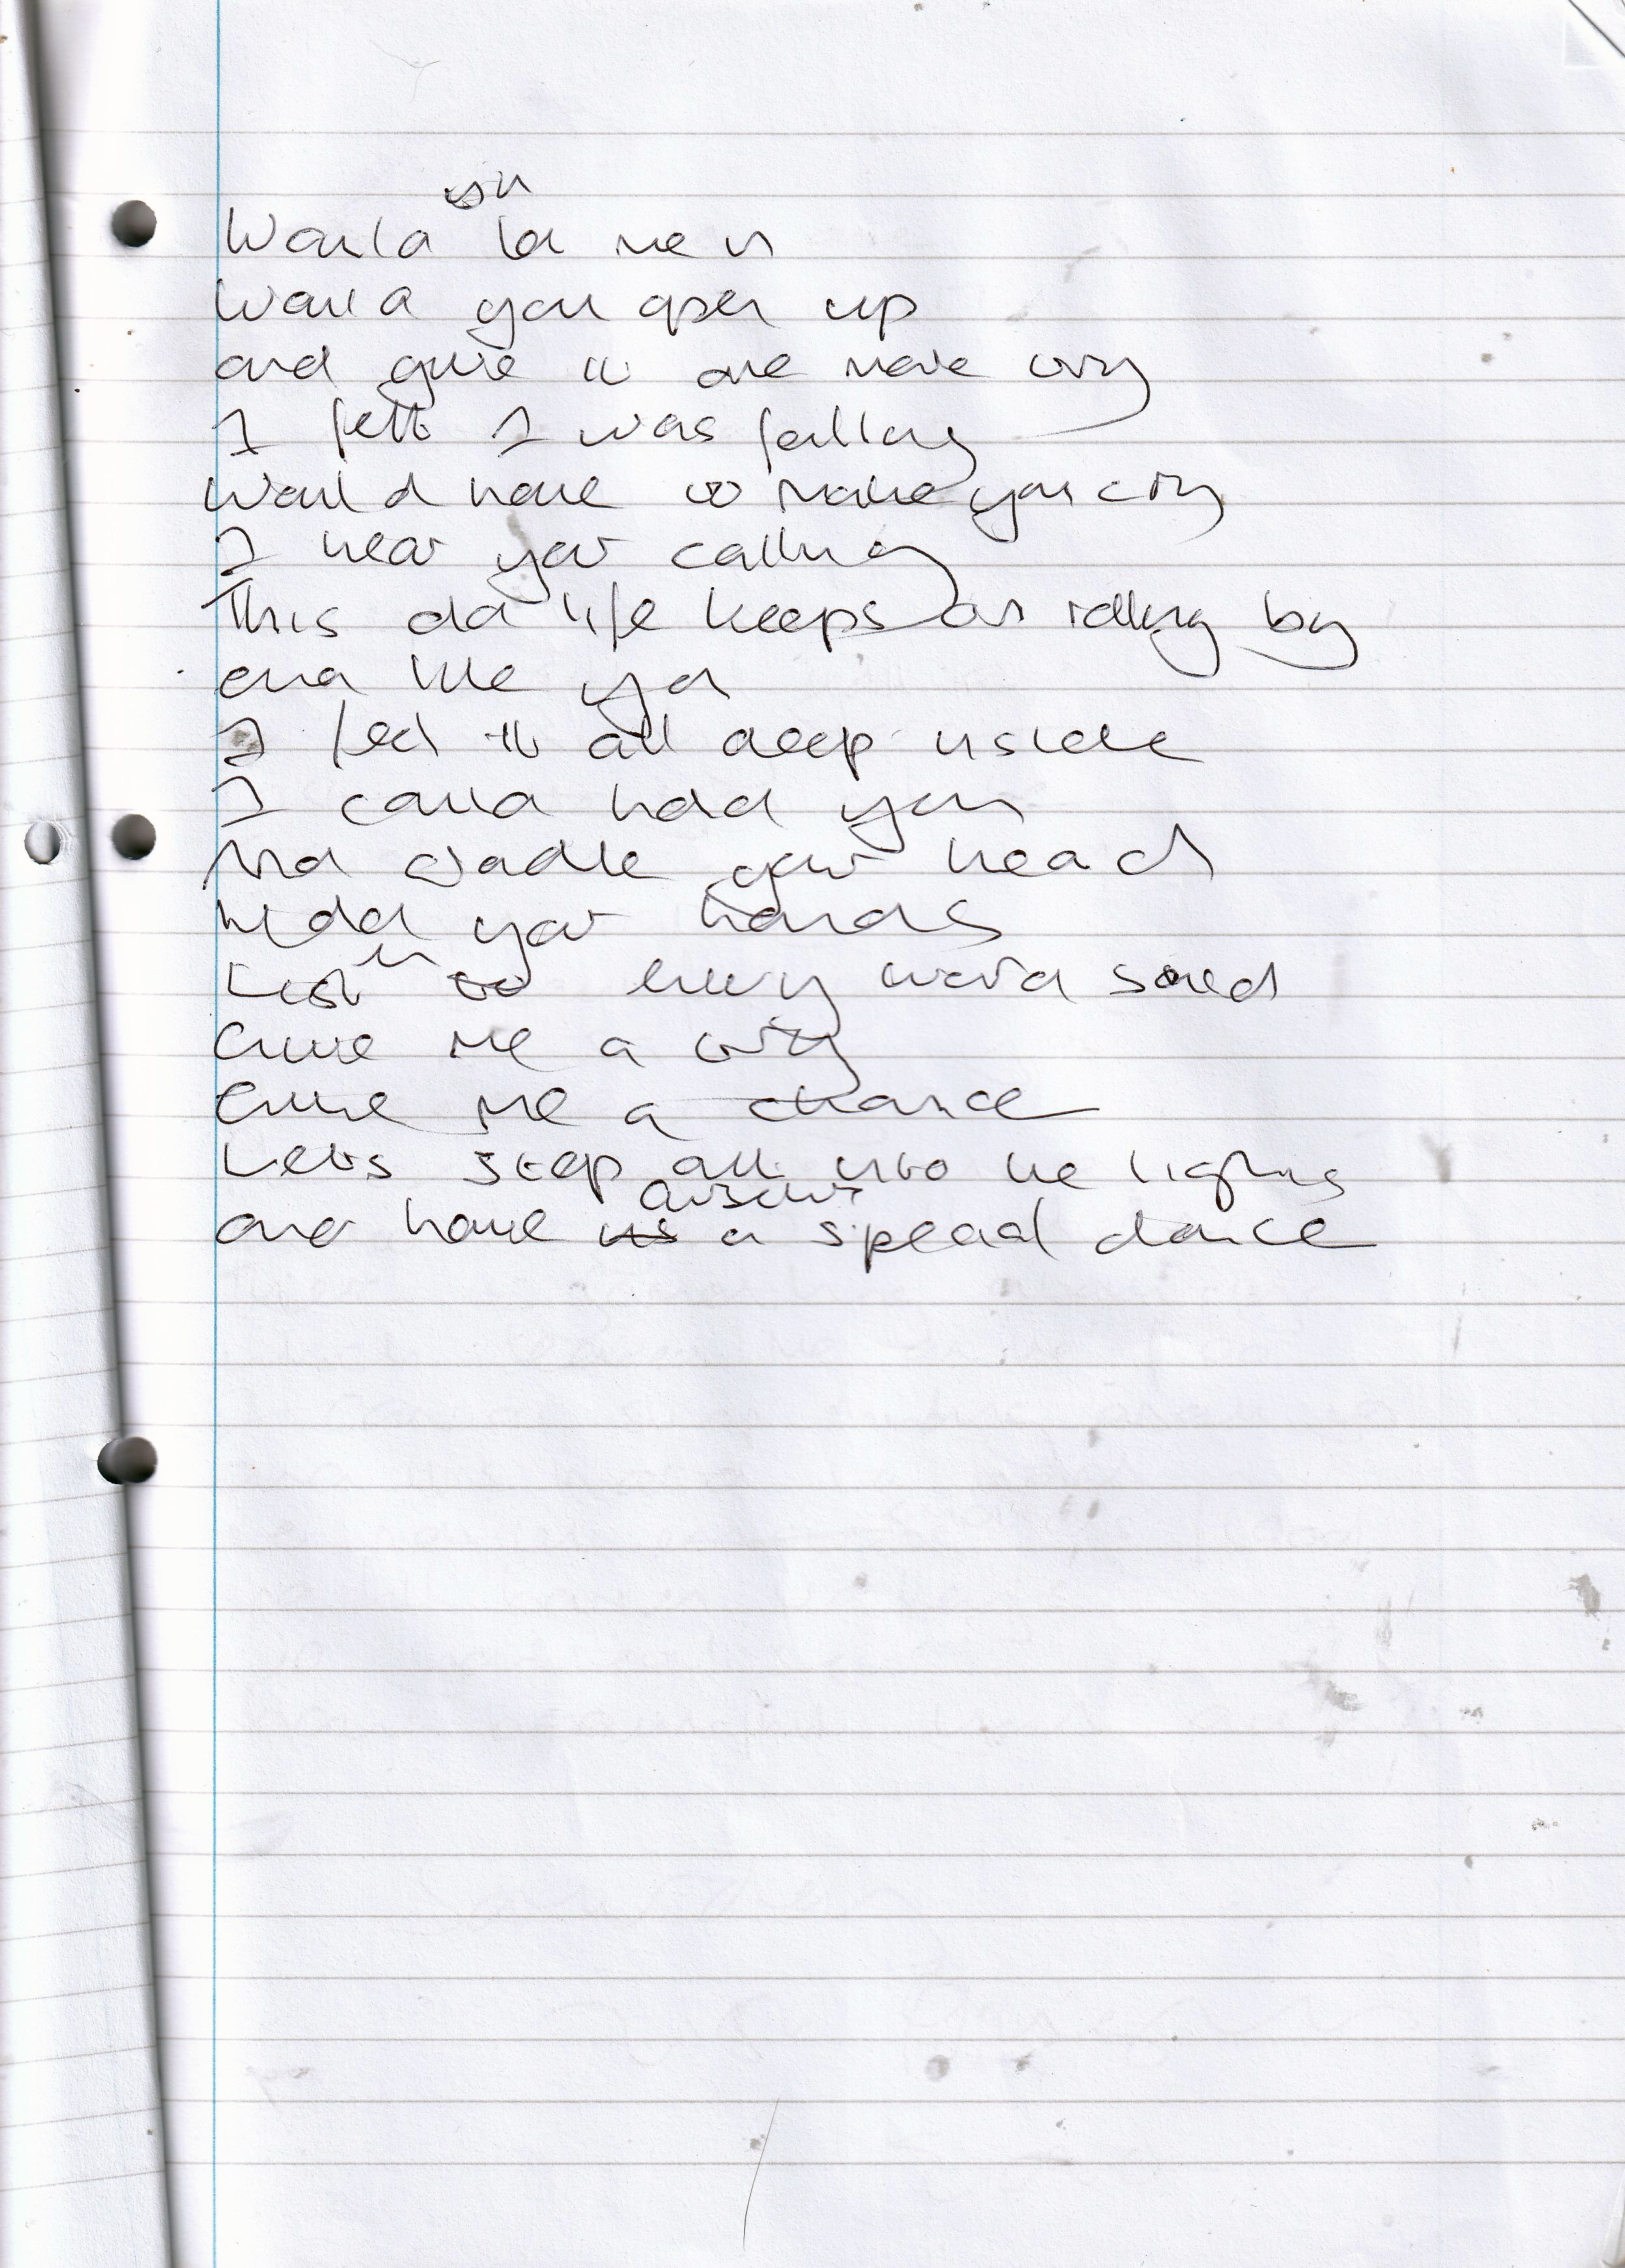 Would you let me in
Would you open up
and give it one more try
I felt I was falling
Would hate to make you cry
I hear your calling
This old life keeps on rolling by
and like you
I feel it all deep inside
I could hold you
And cradle your head
hold your hands
Listen to every word said
Give me a try
Give me a chance
Lets step out into the lights
and have ourselves a special dance